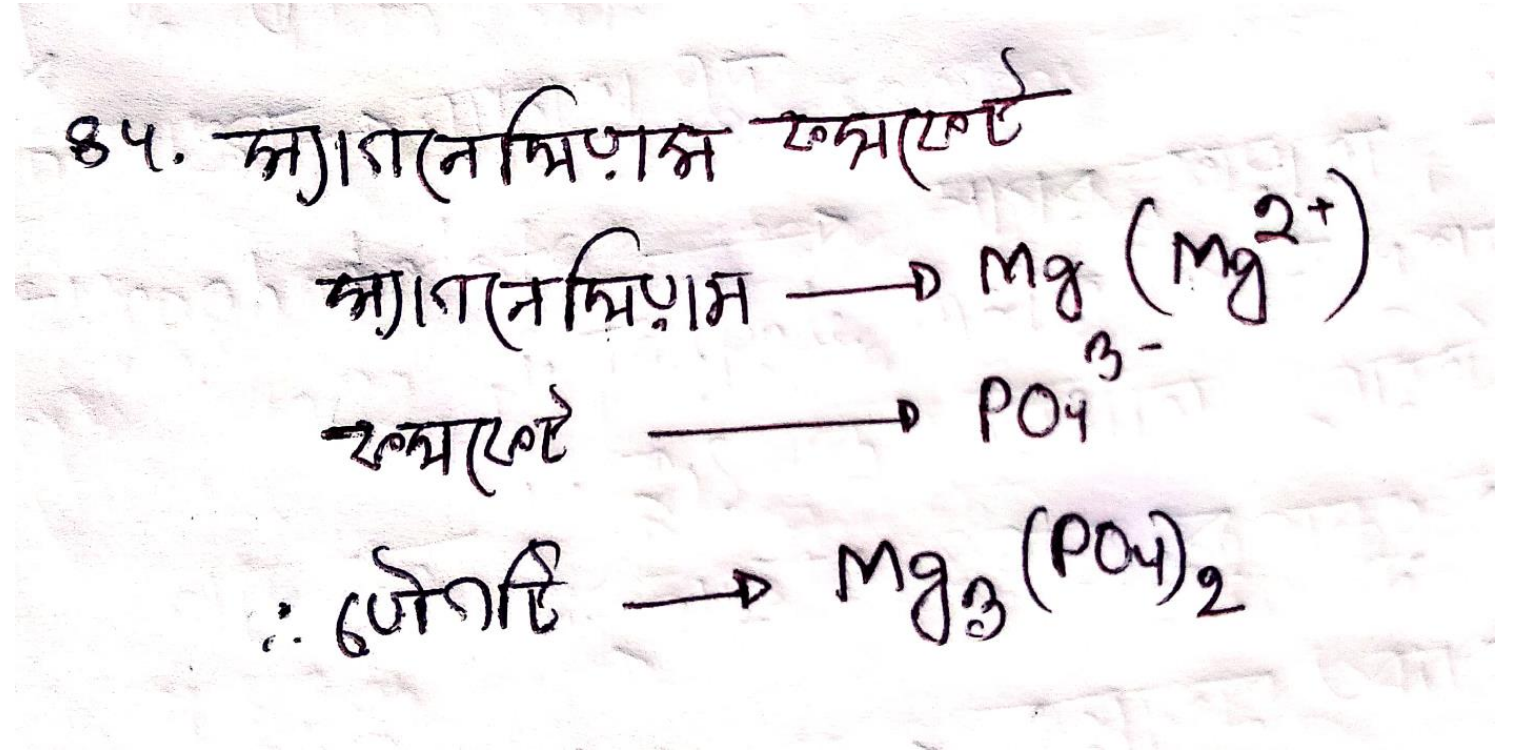 ৪৫. ম্যাগনেসিয়াম ফসফেট
ম্যাগনেসিয়াম → Mg (Mg²⁺)
ফসফেট → PO₄³⁻
∴ যৌগটি → Mg₃(PO₄)₂